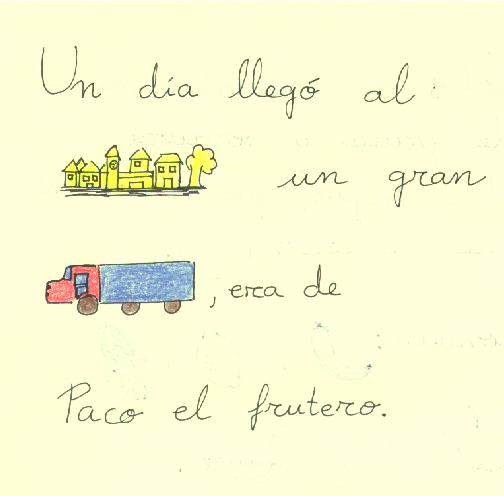 Un día llegó al
un gran
, era de
Paco el frutero.